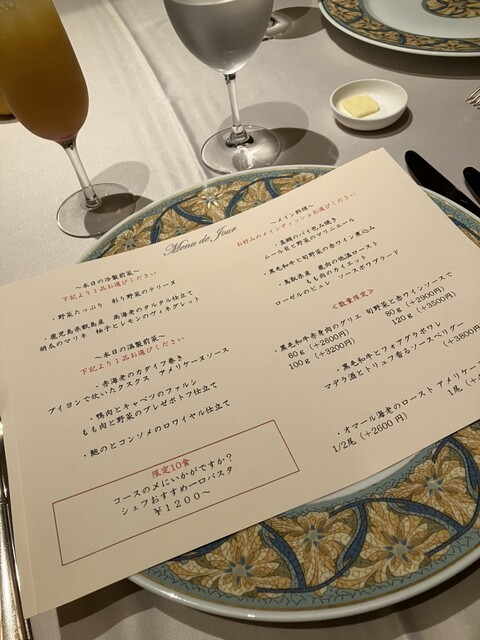 Menu de Jour
～本日の冷製前菜～
下記より１品お選びください
・野菜たっぷり 彩り野菜のテリーヌ
・鹿児島県甑島産 高海老のタルタル仕立て
胡瓜のマリネ 柚子とレモンのヴィネグレット
～本日の温製前菜～
下記より１品お選びください
・赤海老のカダイフ巻き
ブイヨンで炊いたクスクス アメリケーヌソース
・鴨肉とキャベツのファルシ
もも肉と野菜のプレゼポトフ仕立て
・鮑のとコンソメのロワイヤル仕立て
限定10食
コースの〆にいかがですか？
シェフおすすめ一口パスタ
￥１２００～
～メイン料理～
お好みのメインディッシュお選びください
・真鯛のパイ包み焼き
ムール貝と野菜のマリニエール
・黒毛和牛と旬野菜の赤ワイン煮込み
・鳥取県産 鹿肉の低温ロースト
もも肉のガイエット
ローゼルのピュレ ソースポワブラード
≪数量限定≫
・黒毛和牛赤身肉のグリエ 旬野菜と赤ワインソースで
60g（＋2600円） 80g（＋2900円）
100g（＋3200円） 120g（＋3500円）
・黒毛和牛とフォアグラポワレ
マデラ酒とトリュフ香るソースペリグー
（＋3800円
・オマール海老のロースト アメリケー
1/2尾（＋2600円） 1尾（＋